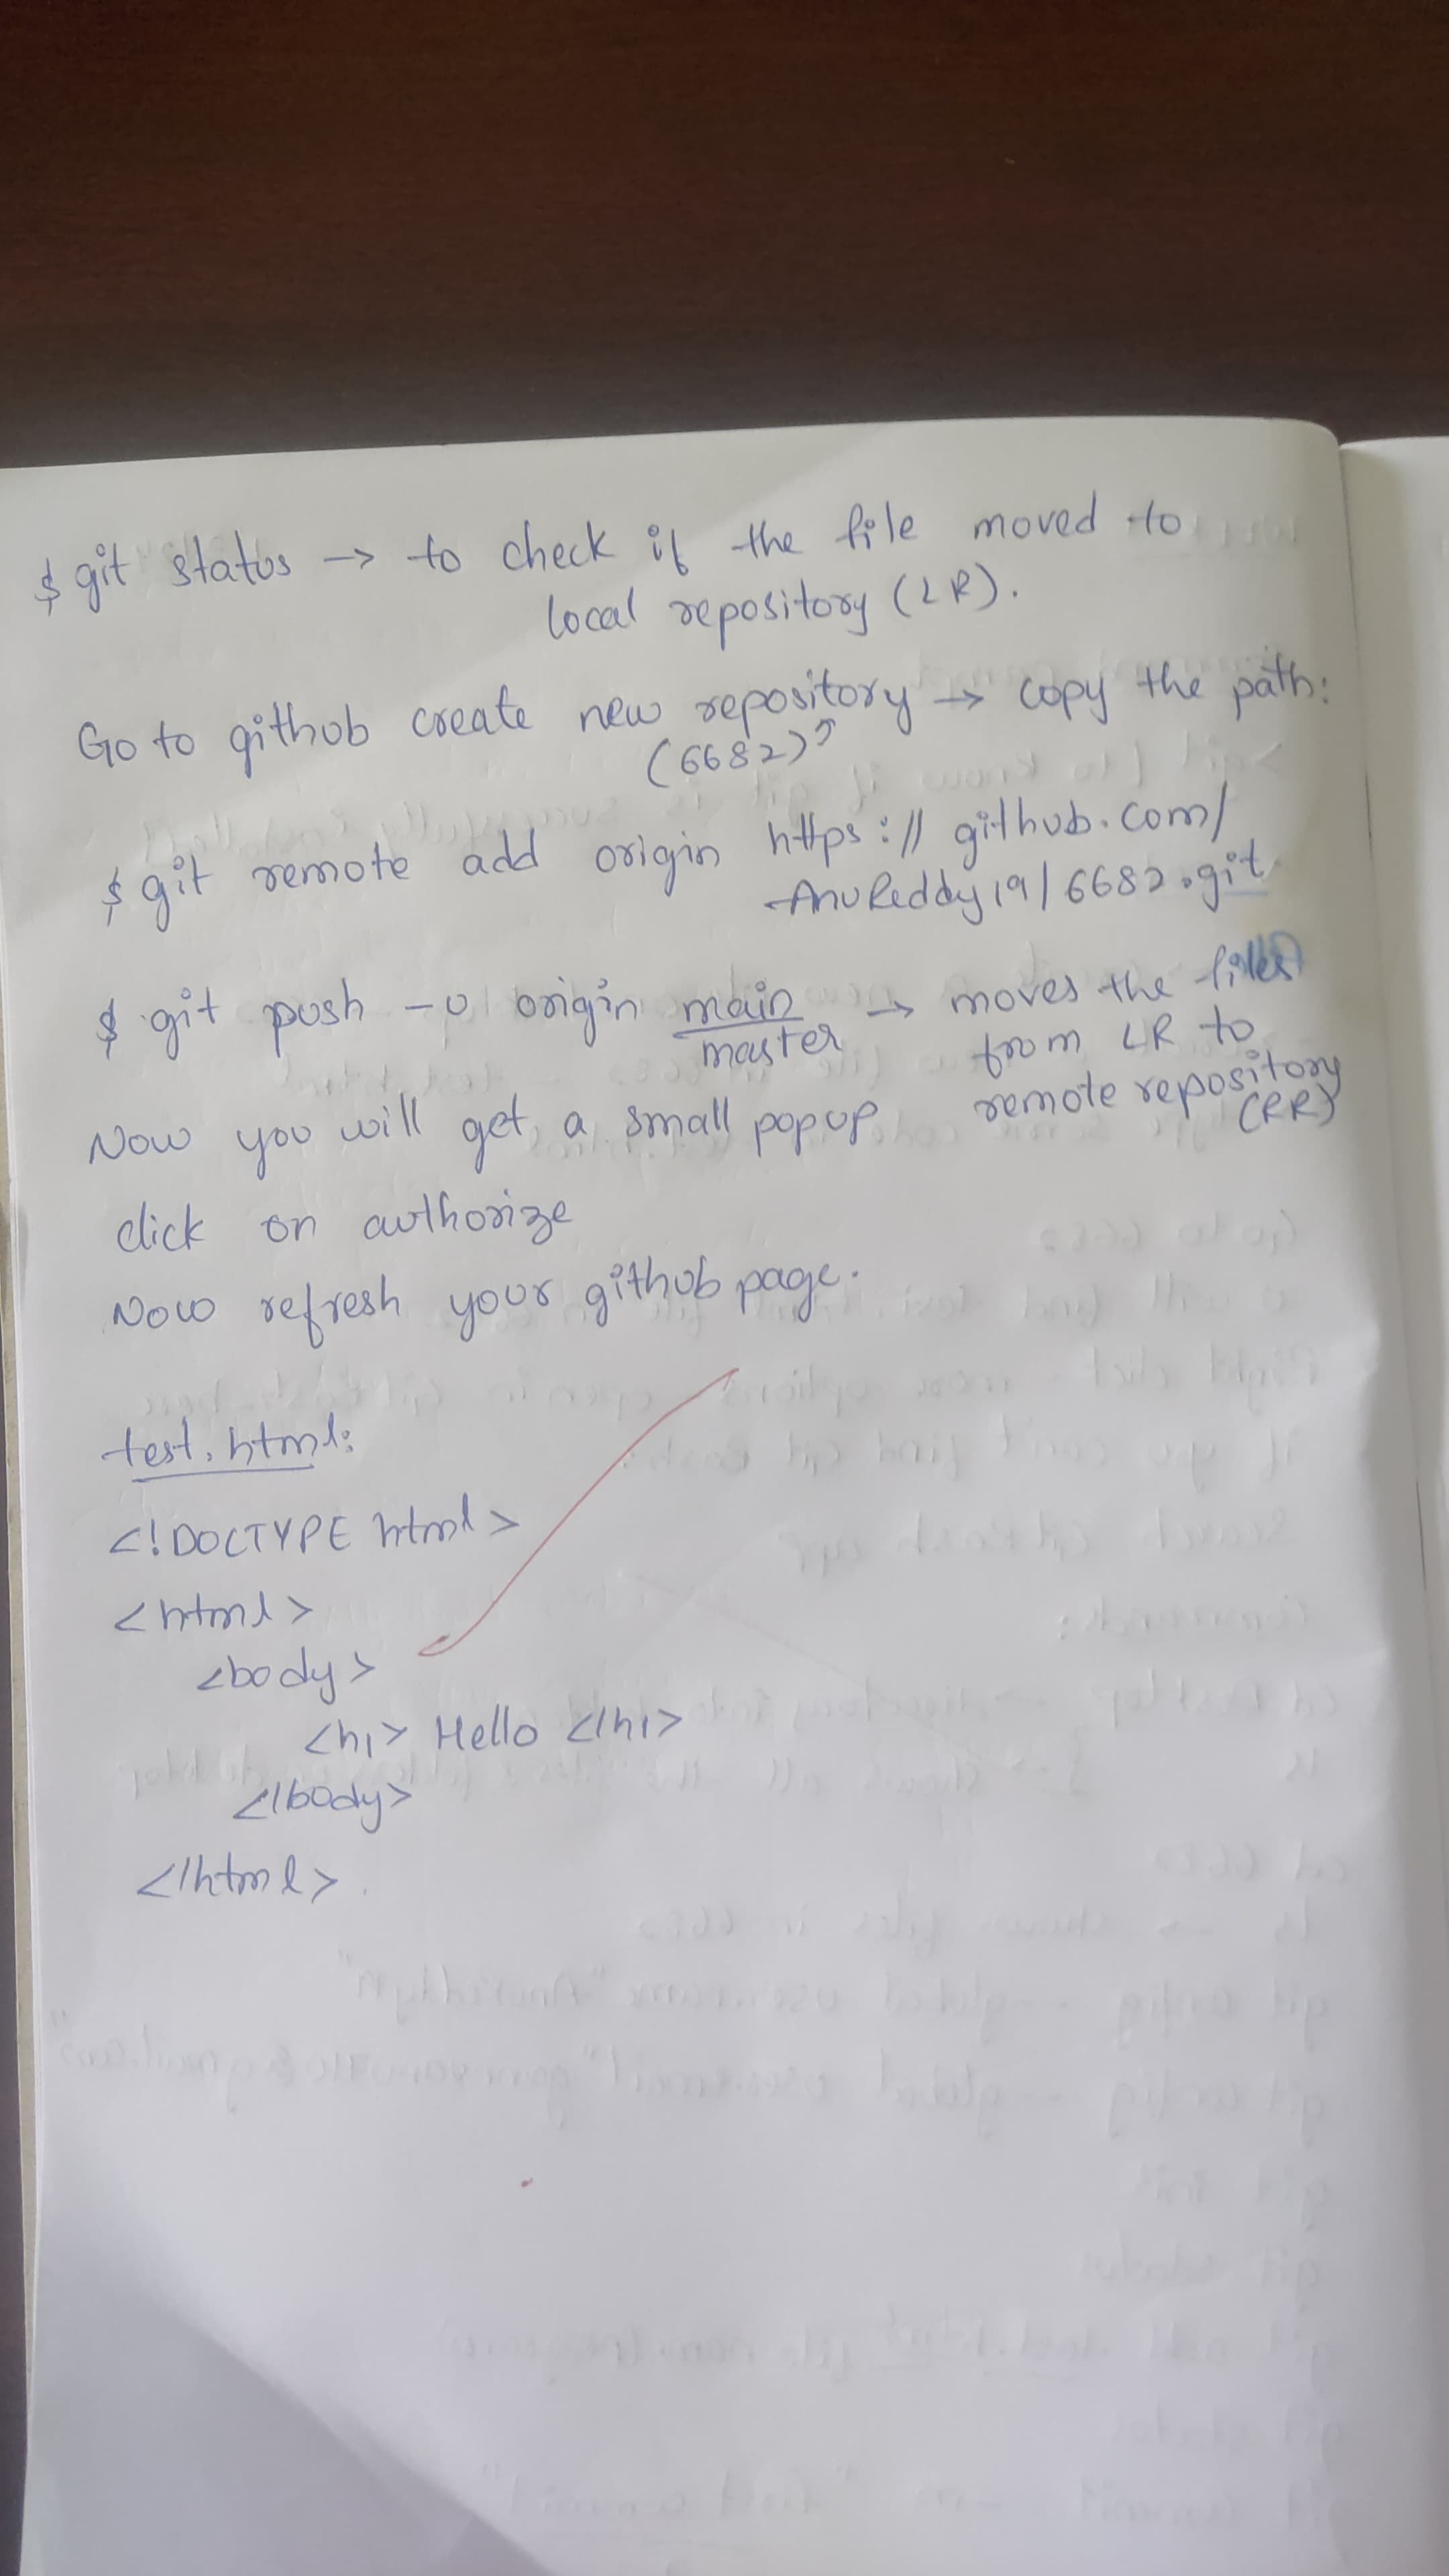 $ git status → to check if the file moved to
local repository (LR).
Go to github create new repository → copy the path:
(6682)
$ git remote add origin https://github.com/
AnuReddy19/6682.git
$ git push -u origin main → moves the files
master from LR to
remote repository
(RR)
Now you will get a small popup
click on authorize
Now refresh your github page.
test.html:
<!DOCTYPE html>
<html>
<body>
<h1> Hello </h1>
</body>
</html>